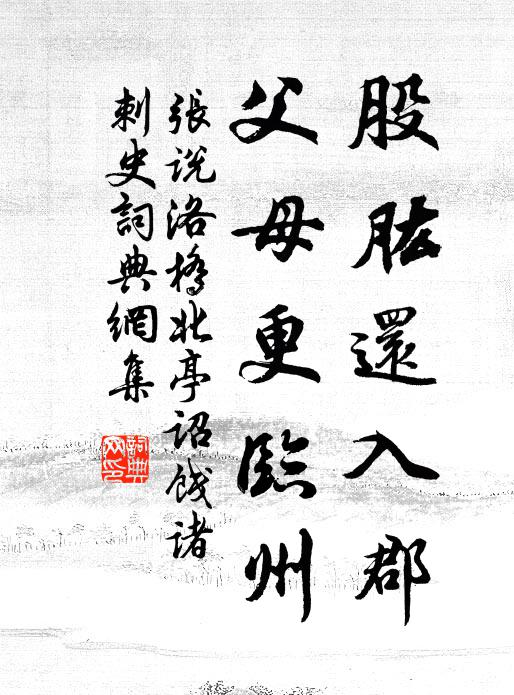 股肱還入郡
父母更臨州
張說洛橋北亭詔餞諸
刺史詞典網集
詞典
网印